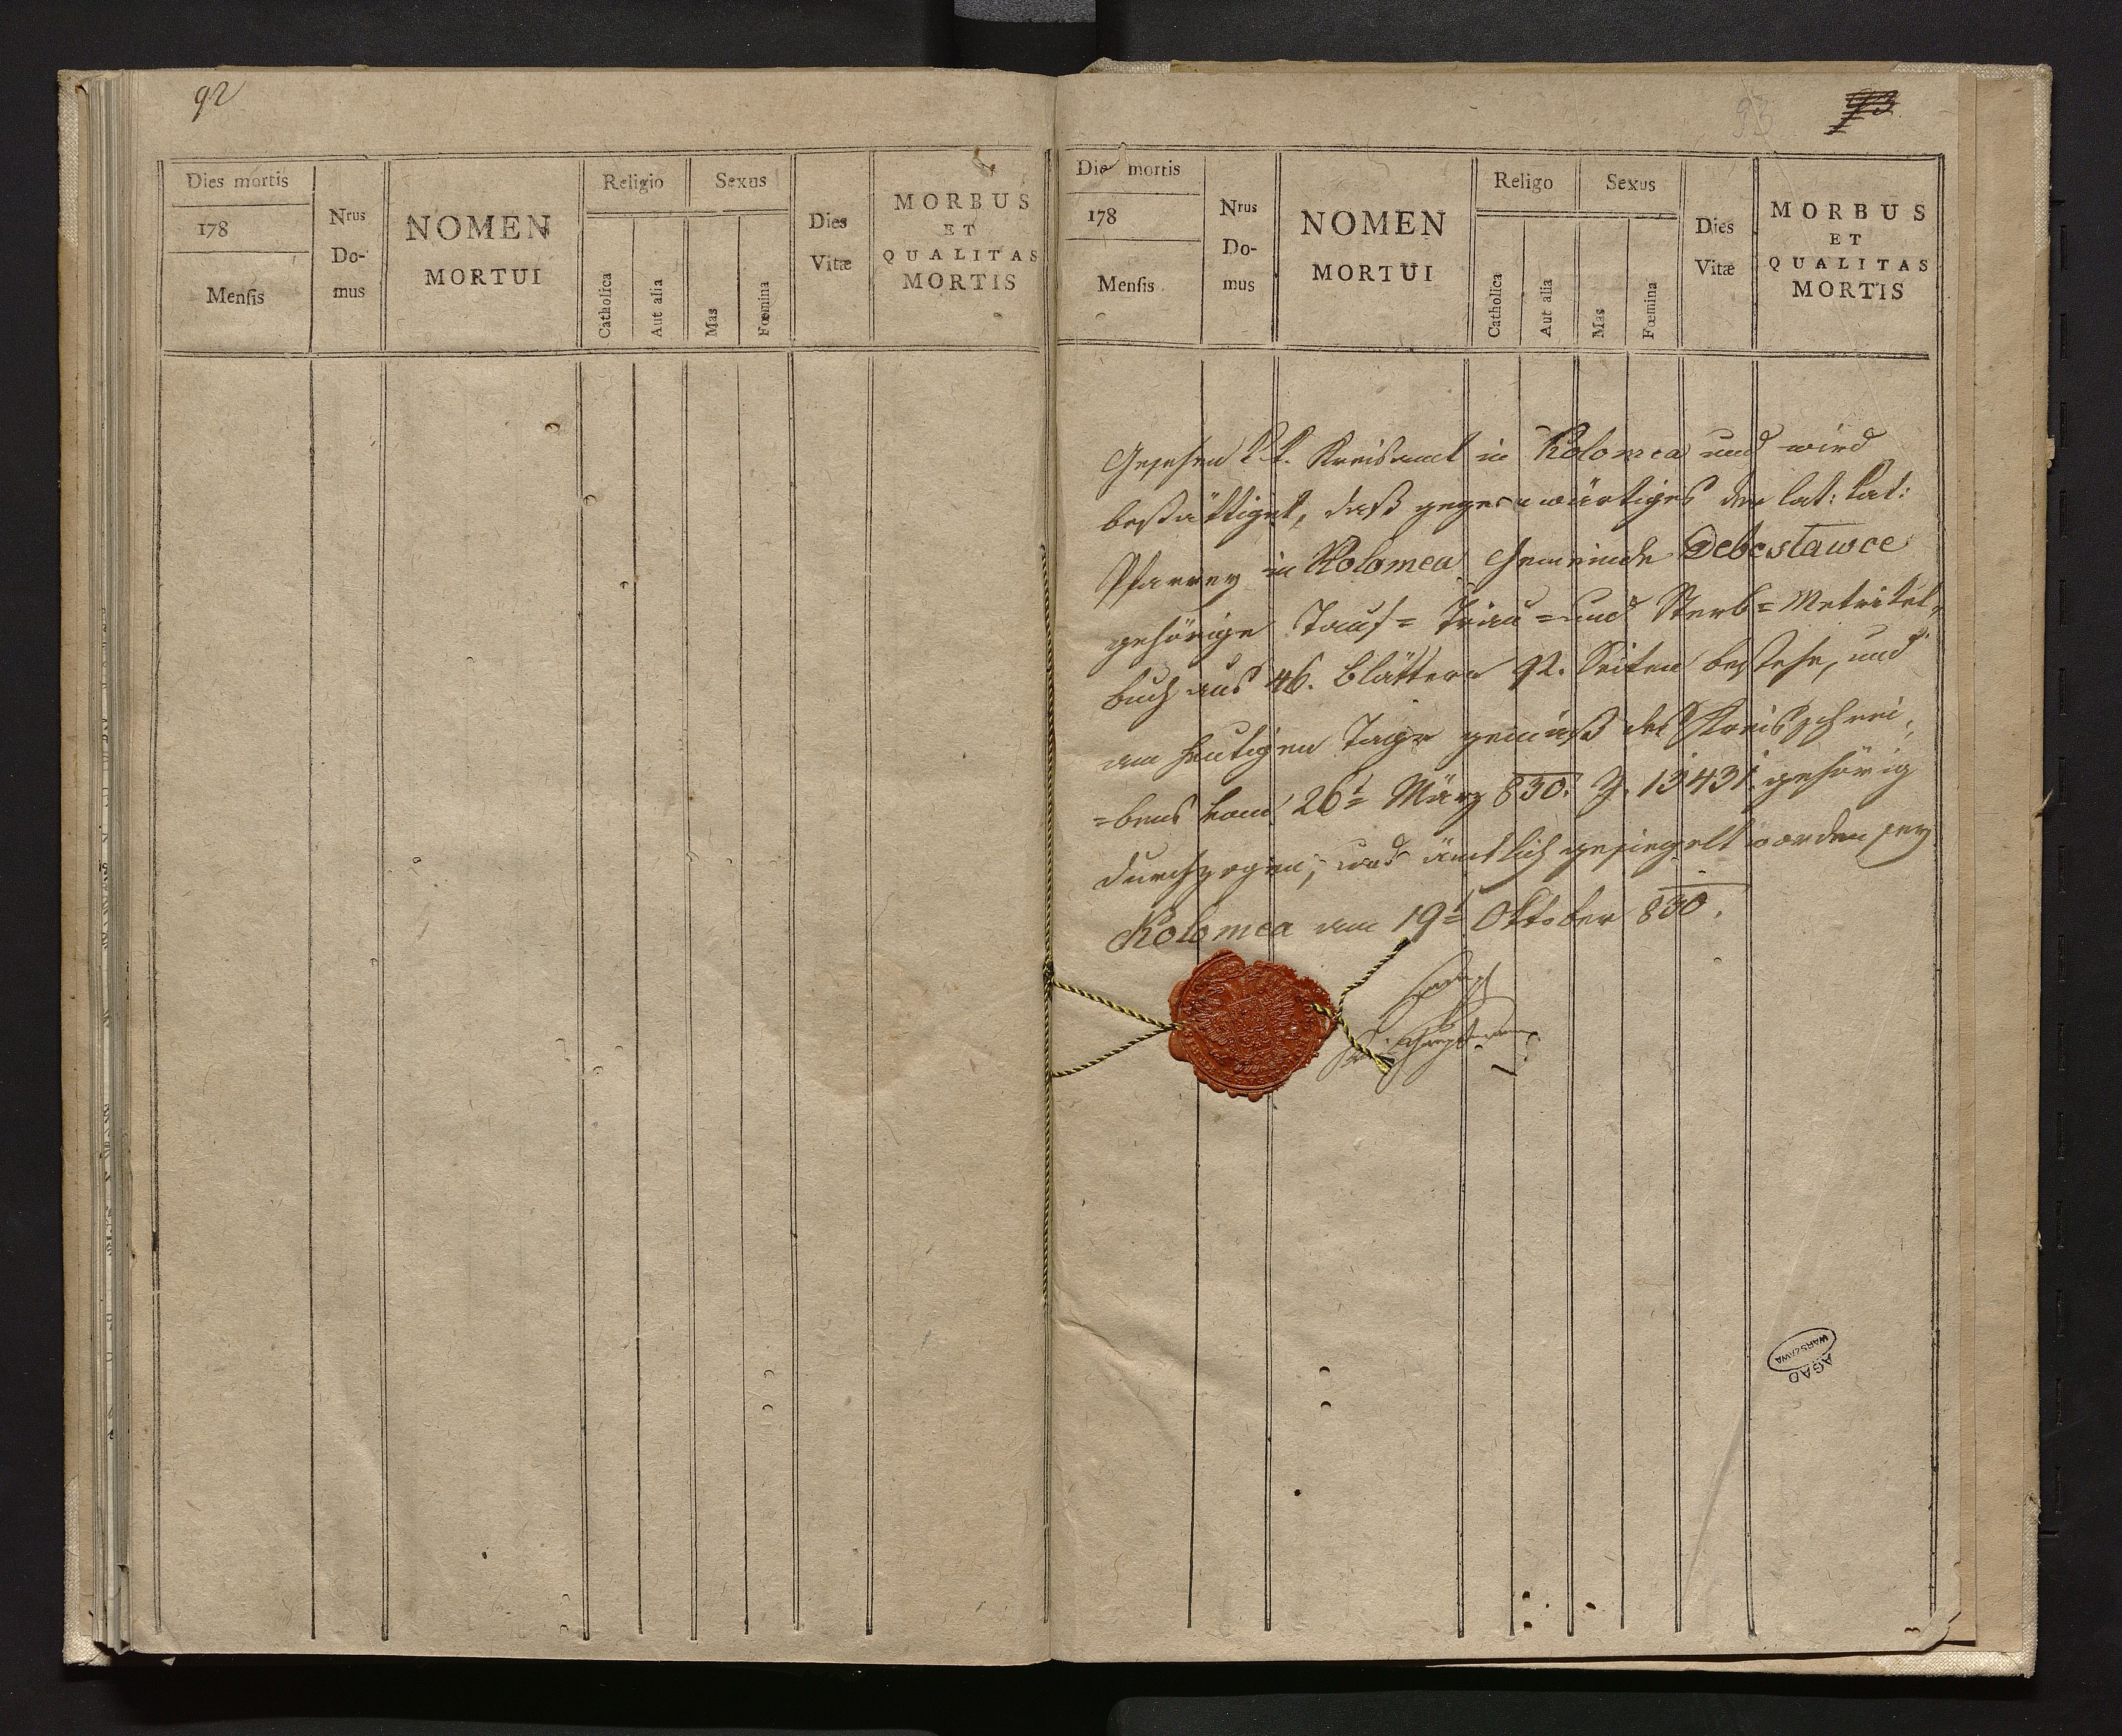 92
Dies mortis
178
Menſis
Nrus
Do-
mus
NOMEN
MORTUI
Religio
Catholica
Aut alia
Sexus
Mas
Fœmina
Dies
Vitæ
MORBUS
ET
QUALITAS
MORTIS
93
93
Dies mortis
178
Menſis
Nrus
Do-
mus
NOMEN
MORTUI
Religo
Catholica
Aut alia
Sexus
Mas
Fœmina
Dies
Vitæ
MORBUS
ET
QUALITAS
MORTIS
Gesehen k.k. Kreisamt in Kolomea und wird
bestättiget, daß gegenwärtiges der lat: kat:
Pfarrey in Kolomea Gemeinde Debesławce
gehörige Tauf= Trau= und Sterb= Metrikel,
buch aus 46. Blättern 92. Seiten bestehe, und
am heutigen Tage gemäß des Kreisschrei,
=bens vom 26t März 830. Z. 13431 gehörig
durchzogen, und ämtlich gesiegelt worden sey
Kolomea am 19t Oktober 830.
AGAD
WARSZAWA